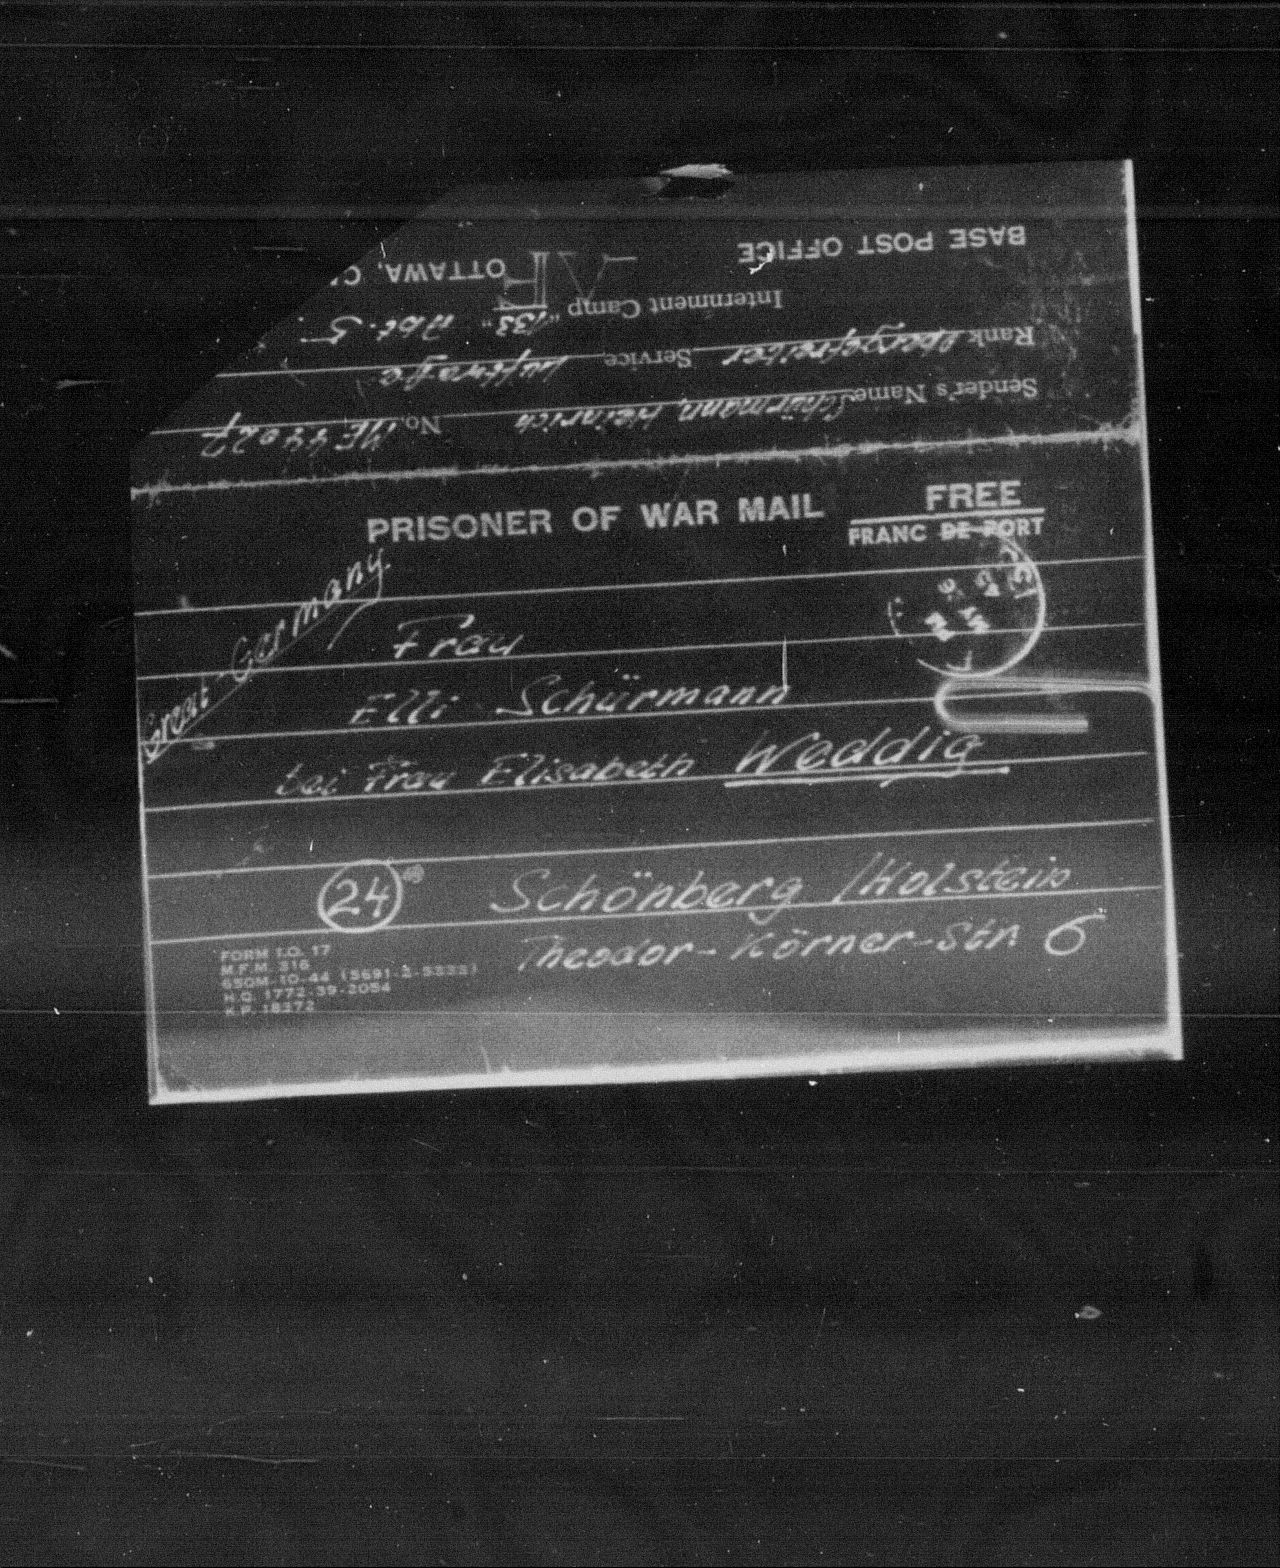 PRISONER OF WAR MAIL
FREE
FRANC DE PORT
Great Germany.
Frau
Elli Schürmann
bei Frau Elisabeth Weddig
24
Schönberg /Holstein
Theodor-Körner-Str. 6
FORM I.O. 17
M.F.M. 216
H.Q. 1772-39-3084
K.P. 18272
Sender's Name Schürmann, Heinrich No.
Rank Obergefreiter Service Luftwaffe
Internment Camp "133" Abt. 5
BASE POST OFFICE OTTAWA,